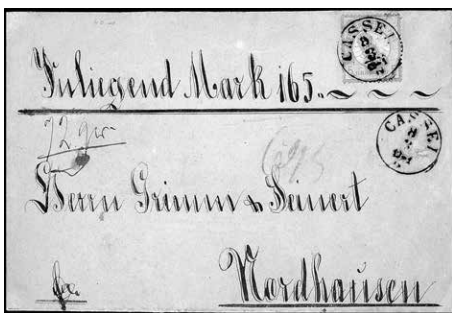 CASSEL
Inliegend Mark 165.
CASSEL
72 gr
Herrn Grimm & Deinert
Nordhausen